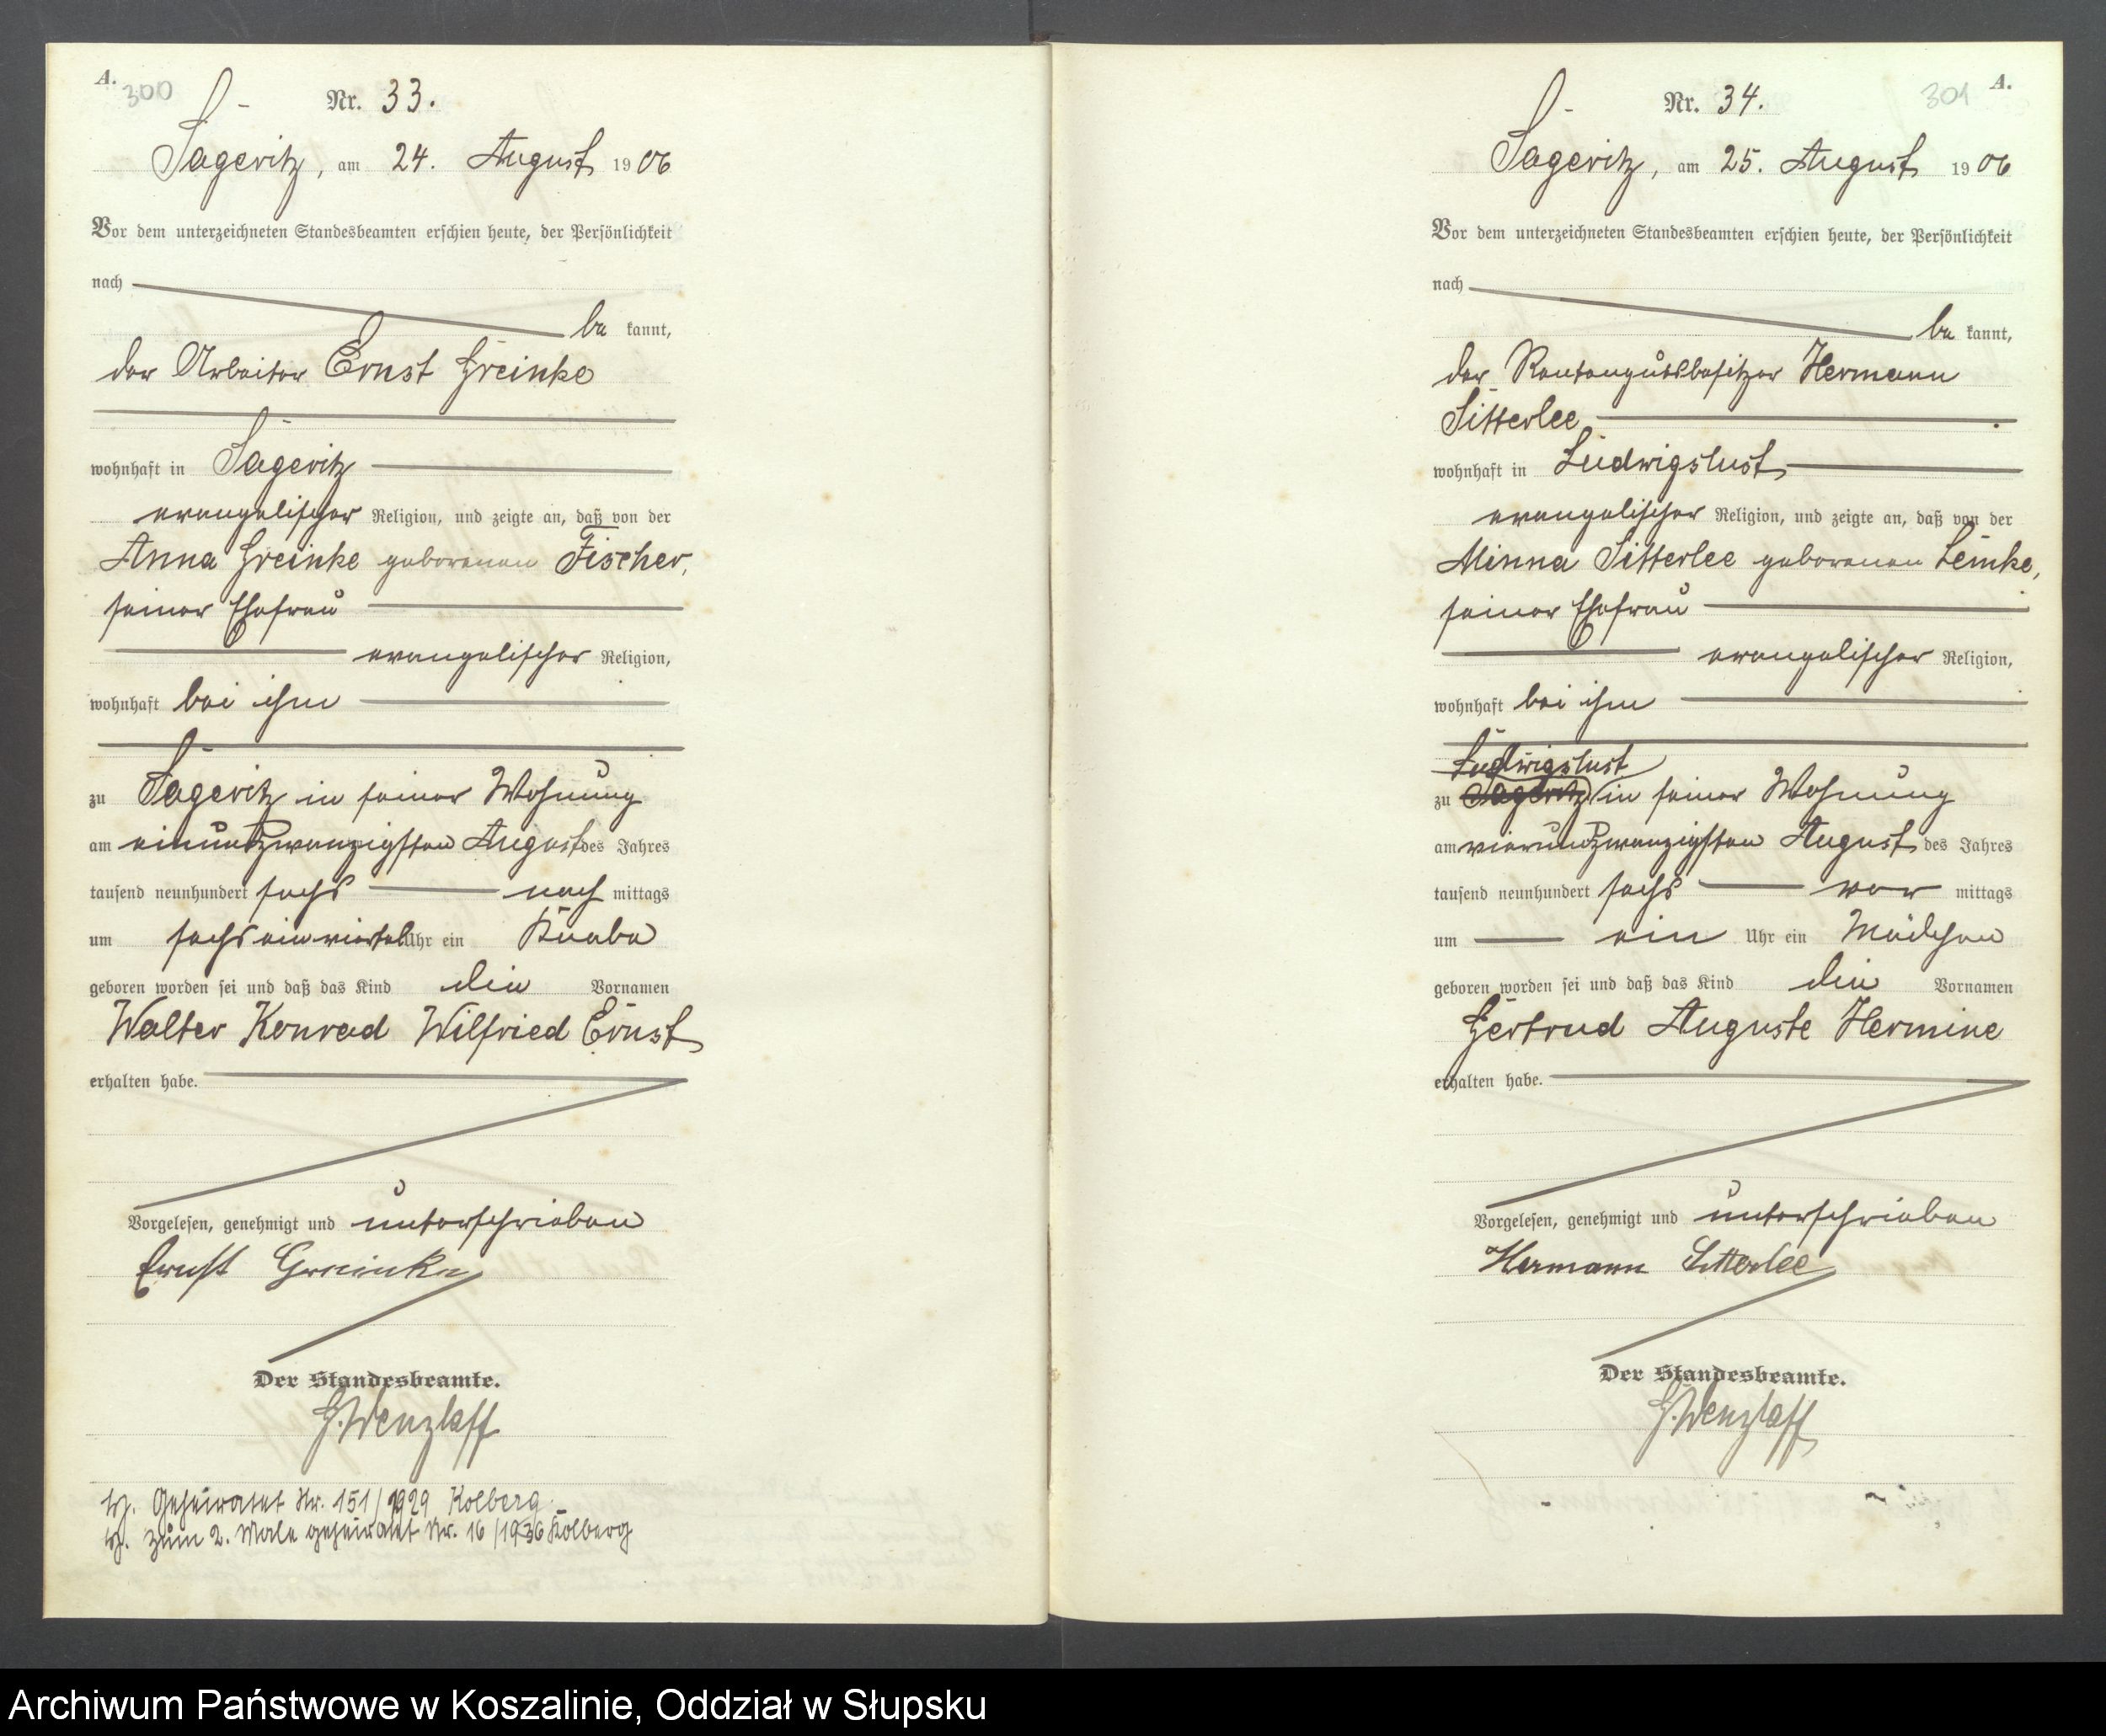 A.
300
Nr. 33.
Sageritz, am 24. August 1906
Vor dem unterzeichneten Standesbeamten erschien heute, der Persönlichkeit
nach
be kannt,
der Arbeiter Ernst Greinke
wohnhaft in Sageritz
evangelischer Religion, und zeigte an, daß von der
Anna Greinke geborenen Fischer,
seiner Ehefrau
evangelischer Religion,
wohnhaft bei ihm
zu Sageritz in seiner Wohnung
am einundzwanzigsten August des Jahres
tausend neunhundert sechs nach mittags
um sechs ein viertel Uhr ein Knabe
geboren worden sei und daß das Kind die Vornamen
Walter Konrad Wilfried Ernst
erhalten habe.
Vorgelesen, genehmigt und unterschrieben
Ernst Greinke
Der Standesbeamte.
G. Wenzlaff
Geheiratet Nr. 151/1929 Kolberg.
Zum 2. Male geheiratet Nr. 16/1936 Kolberg
301
A.
Nr. 34.
Sageritz, am 25. August 1906
Vor dem unterzeichneten Standesbeamten erschien heute, der Persönlichkeit
nach
be kannt,
der Rentengutsbesitzer Hermann
Sitterlee
wohnhaft in Ludwigslust
evangelischer Religion, und zeigte an, daß von der
Minna Sitterlee geborenen Lemke,
seiner Ehefrau
evangelischer Religion,
wohnhaft bei ihm
Ludwigslust
zu Sageritz in seiner Wohnung
am vierundzwanzigsten August des Jahres
tausend neunhundert sechs vor mittags
um ein Uhr ein Mädchen
geboren worden sei und daß das Kind die Vornamen
Gertrud Auguste Hermine
erhalten habe.
Vorgelesen, genehmigt und unterschrieben
Hermann Sitterlee
Der Standesbeamte.
G. Wenzlaff
Archiwum Państwowe w Koszalinie, Oddział w Słupsku